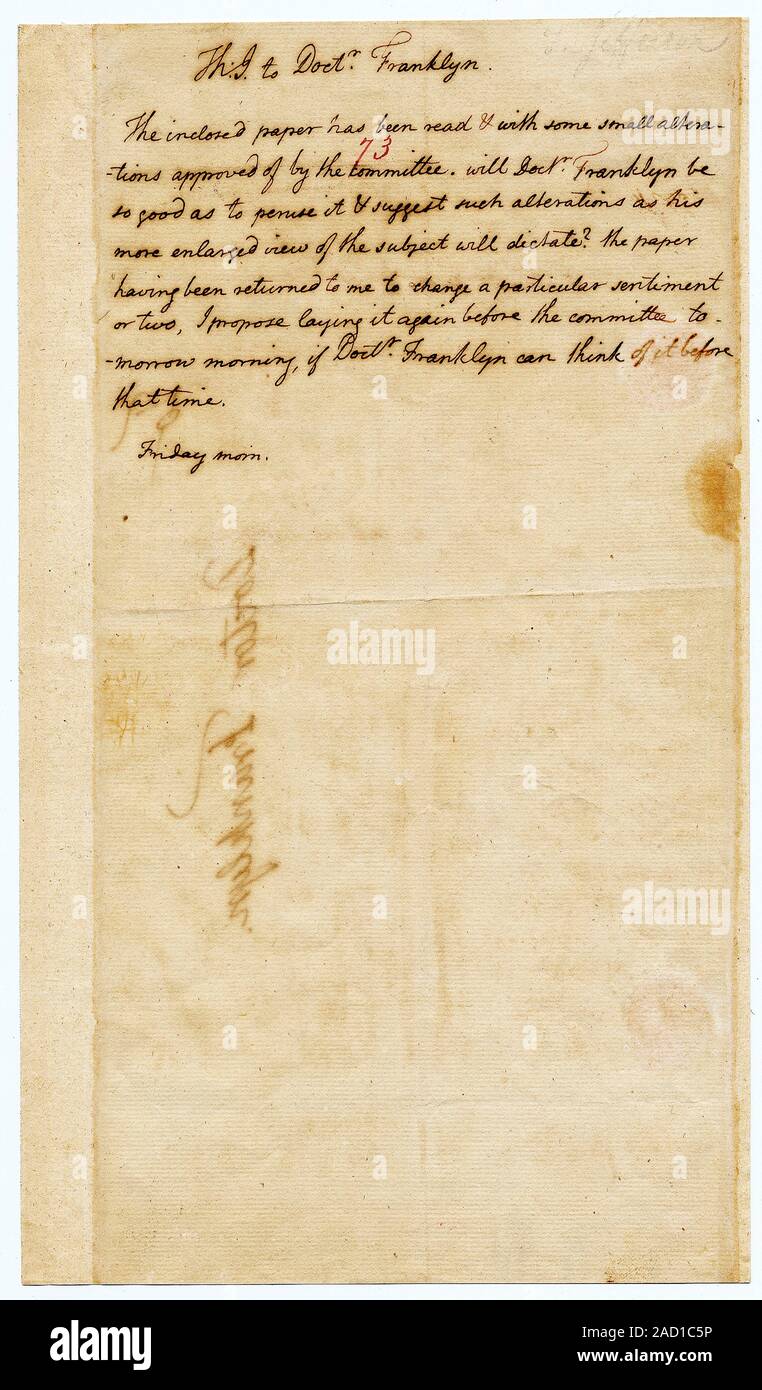 T. Jefferson
Th: J. to Doctr. Franklyn.
The inclosed paper has been read & with some small altera-
73
-tions approved of by the committee. will Doctr. Franklyn be
so good as to peruse it & suggest such alterations as his
more enlarged view of the subject will dictate? the paper
having been returned to me to change a particular sentiment
or two, I propose laying it again before the committee to-
-morrow morning, if Doctr. Franklyn can think of it before
that time.
Friday morn.
Doctor Franklyn.
alamy
alamy
alamy
alamy
Image ID: 2AD1C5P
www.alamy.com